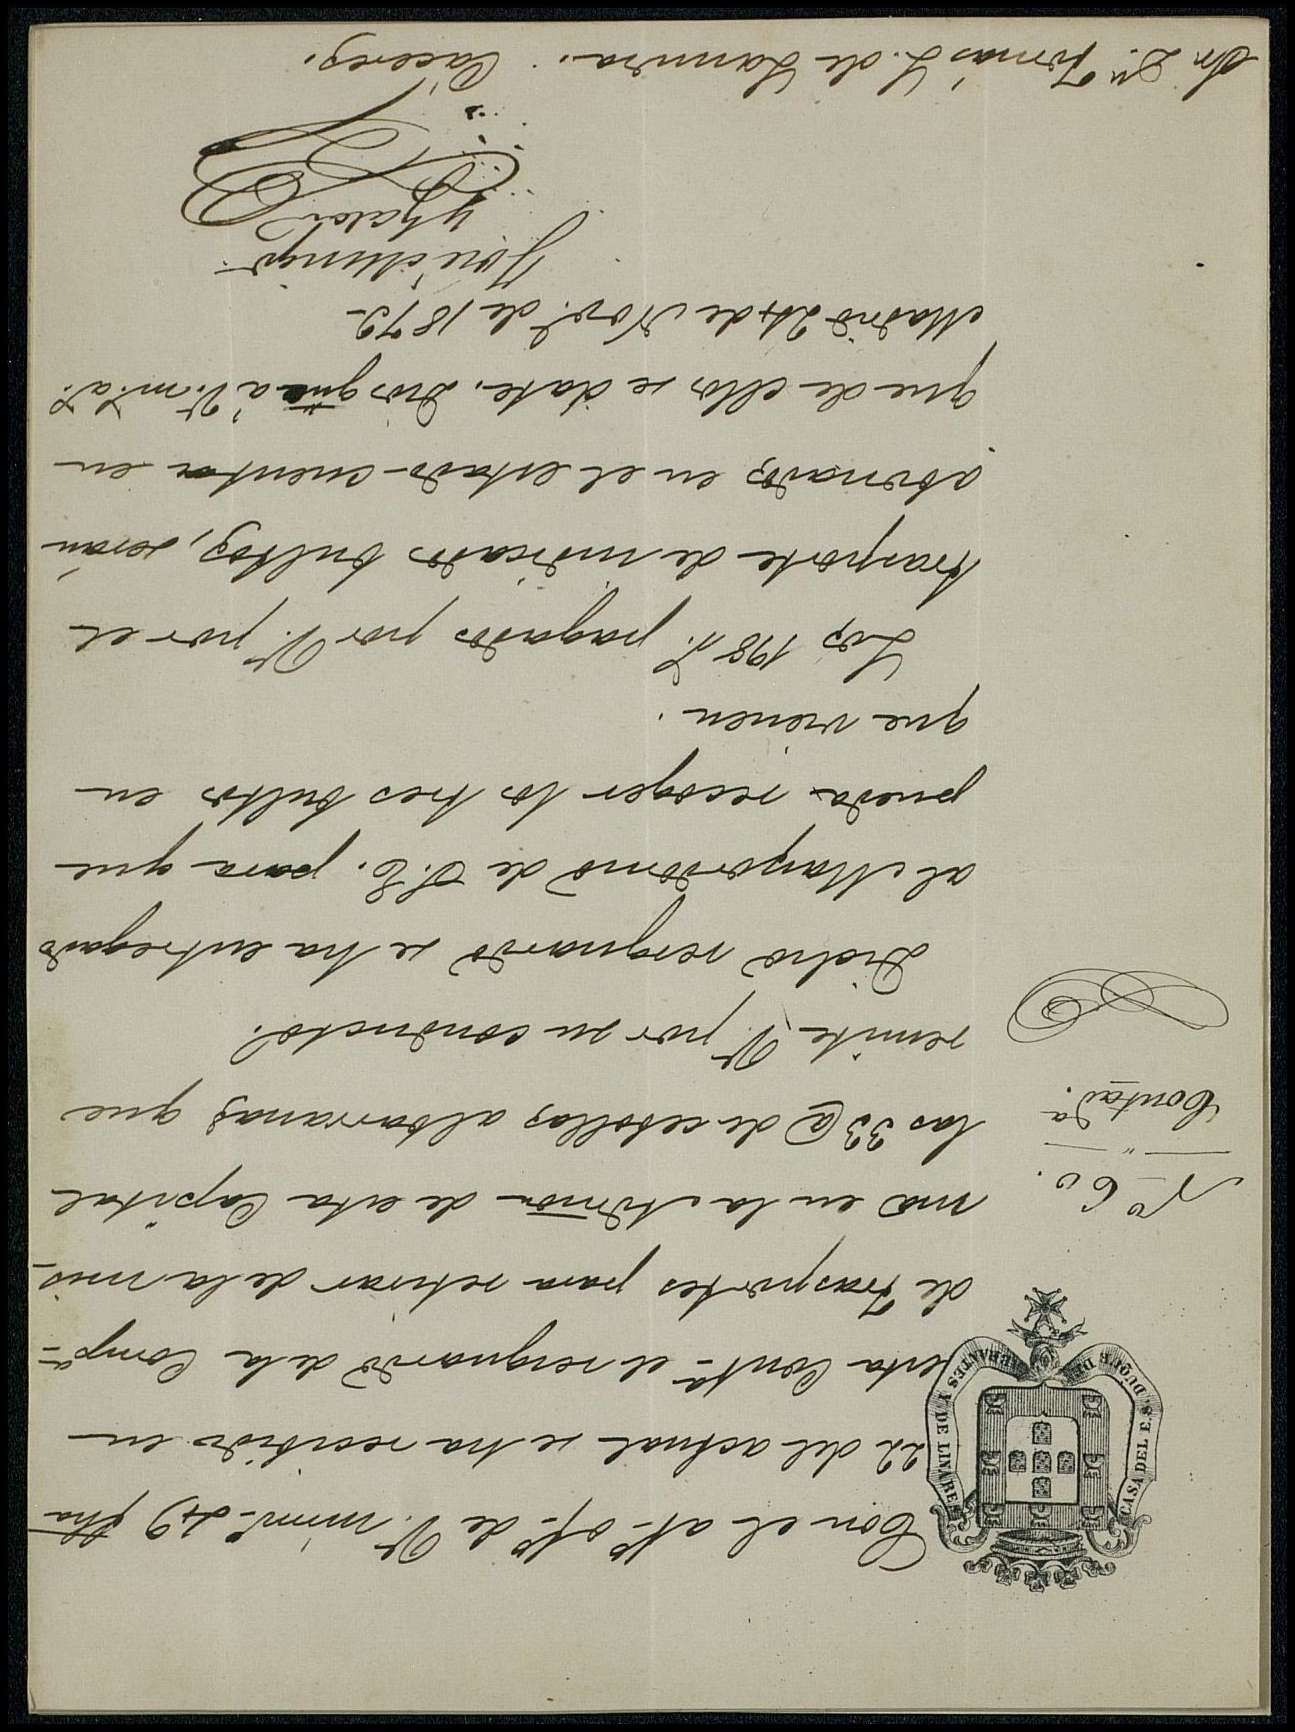 CASA DEL E.S. DUQUE DE ABRANTES Y DE LINARES
Nº 60.
Contadª.
Con el atº ofº de V. numº 249 fha
22 del actual se ha recibido en
esta Contª el resguardo de la Compª
de Trasportes para retirar de la mis-
ma en la Admon de esta Capital
las 33 @ de cebollas albarranas que
remite V. por su conducto.
Dicho resguardo se ha entregado
al Mayordomo de S.E. para que
pueda recoger los tres bultos en
que vienen.
Los 198 r. pagados por V. por el
trasporte de indicados bultos, serán
abonados en el estado-cuenta en
que de ellos se date. Dios gue á V. m.s a.s
Madrid 24 de Nov.e de 1879
José Munjo
y
Sr. Dn Tomás G. de Lamera. Cáceres.